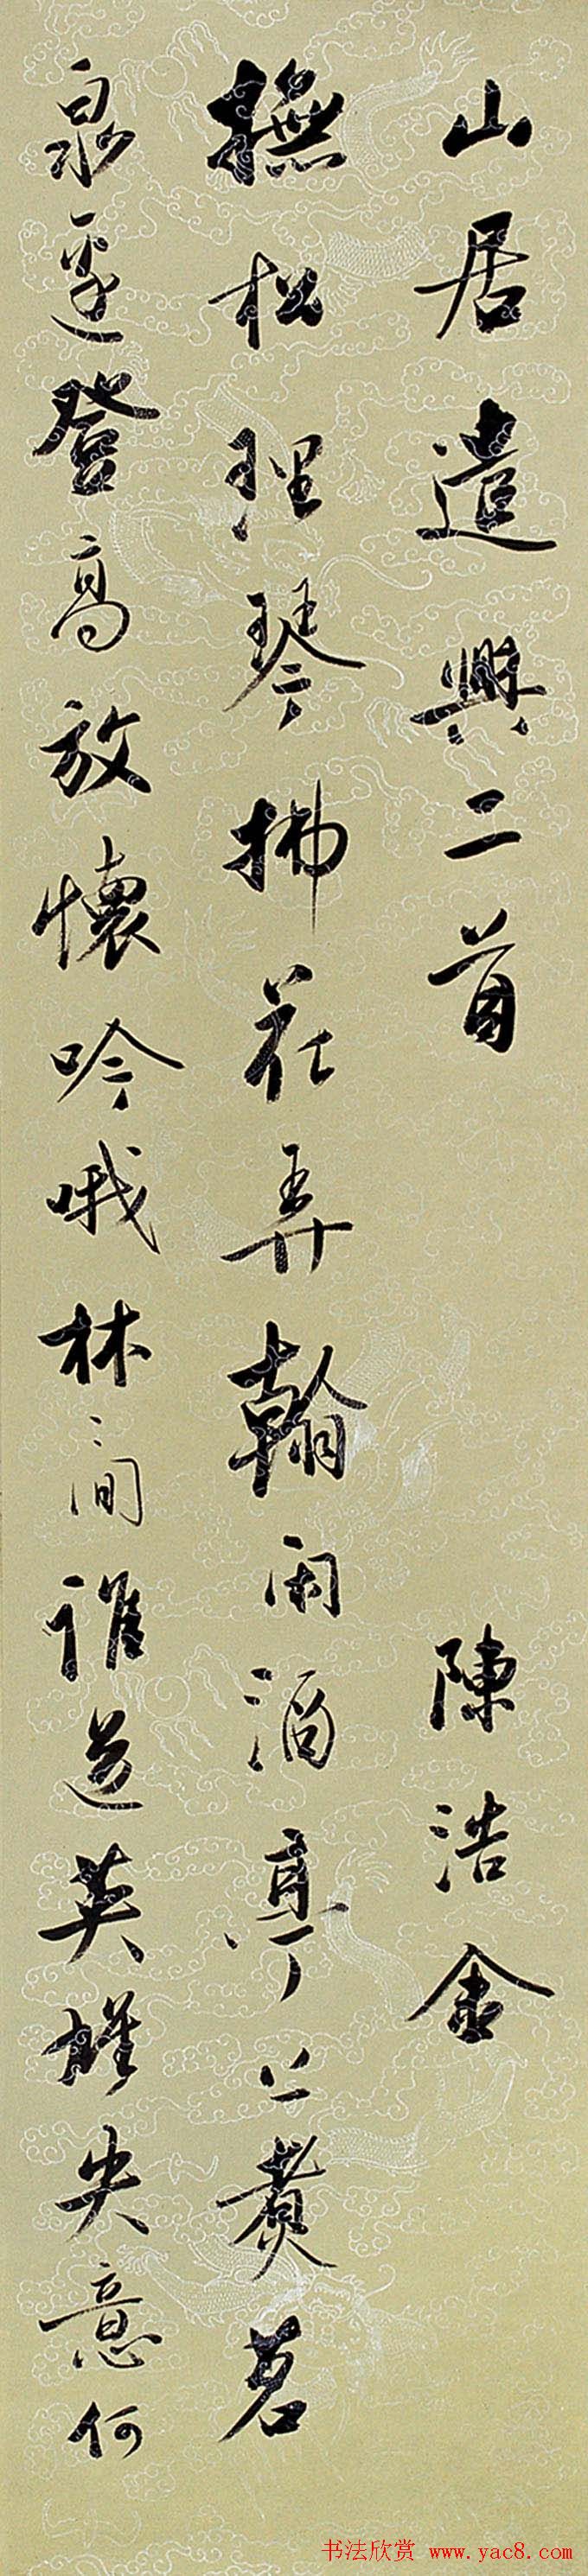 山居遣興二首 陳浩金
撫松理琴拂花弄翰閑酒亭上煮茗
泉邊登高放懷吟哦林間誰道英雄失意何
书法欣赏 www.yac8.com